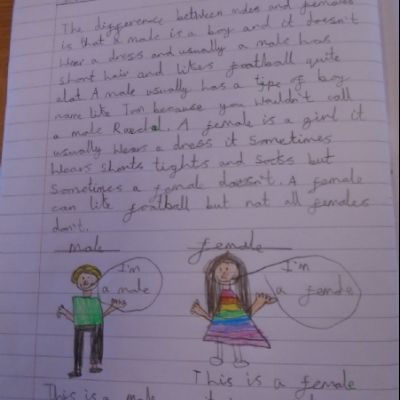 The difference between males and females
is that a male is a boy and it doesn't
wear a dress and usually a male has
short hair and likes football quite
alot. A male usually has a type of boy
name like Tom because you wouldn't call
a male Rachal. A female is a girl it
usually wears a dress it sometimes
wears shorts tights and socks but
sometimes a female doesn't. A female
can like football but not all females
don't.
male
female
I'm
a male
I'm
a female
This is a male
This is a female